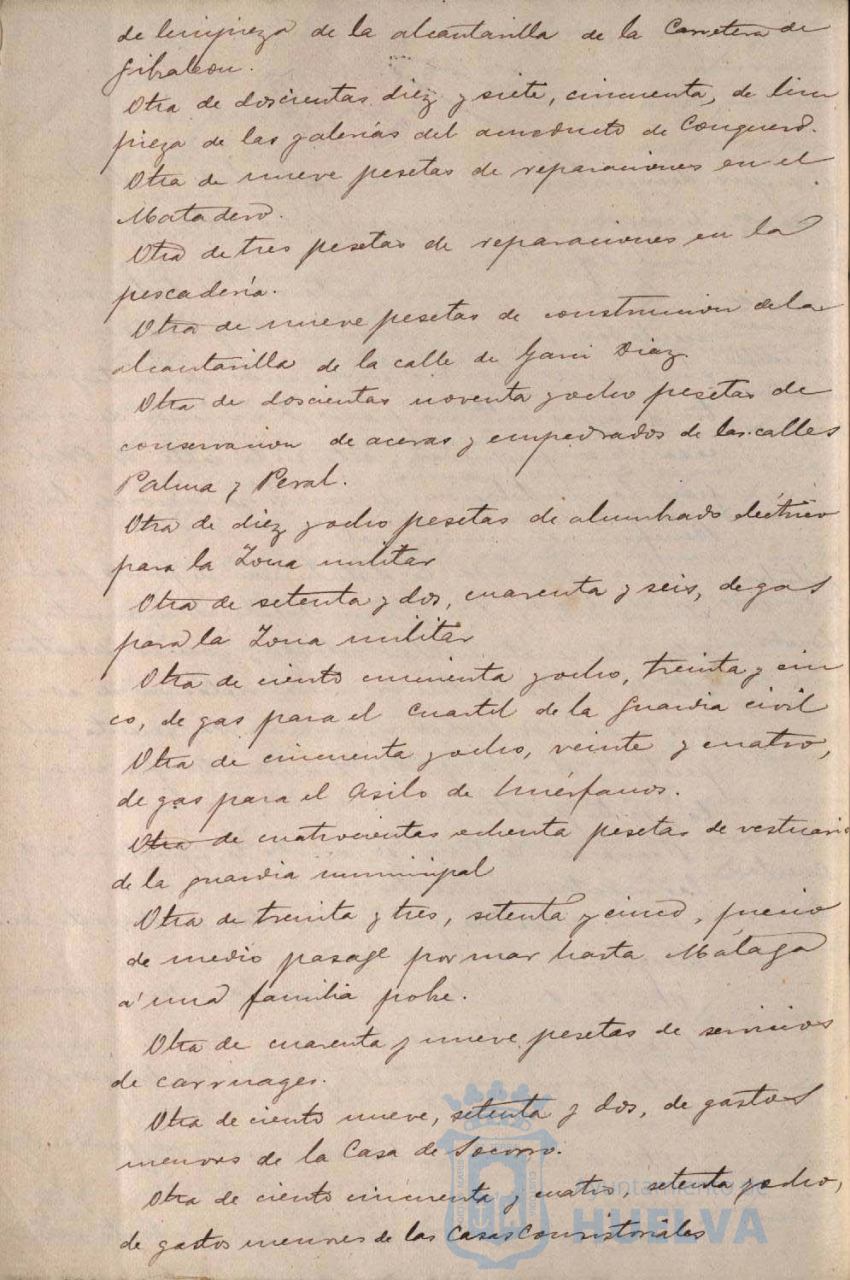 de limpieza de la alcantarilla de la Carretera de
Gibraleon.
Otra de doscientas diez y siete, cincuenta, de lim
pieza de las galerías del acueducto de Conquero.
Otra de nueve pesetas de reparaciones en el
Matadero.
Otra de tres pesetas de reparaciones en la
pescadería.
Otra de nueve pesetas de construccion de la
alcantarilla de la calle de Garci Diaz.
Otra de doscientas noventa y ocho pesetas de
conservacion de aceras y empedrados de las calles
Palma y Peral.
Otra de diez y ocho pesetas de alumbrado eléctrico
para la Zona militar
Otra de setenta y dos, cuarenta y seis, de gas
para la Zona militar
Otra de ciento cincuenta y ocho, treinta y cin
co, de gas para el Cuartel de la Guardia civil
Otra de cincuenta y ocho, veinte y cuatro,
de gas para el Asilo de Huérfanos.
Otra de cuatrocientas ochenta pesetas de vestuario
de la guardia municipal
Otra de treinta y tres, setenta y cinco, precio
de medio pasage por mar hasta Málaga
á una familia pobre.
Otra de cuarenta y nueve pesetas de servicios
de carruages.
Otra de ciento nueve, setenta y dos, de gastos
menores de la Casa de Socorro.
Otra de ciento cincuenta y cuatro, setenta y ocho,
de gastos menores de las Casas Consistoriales
Ayuntamiento de
HUELVA